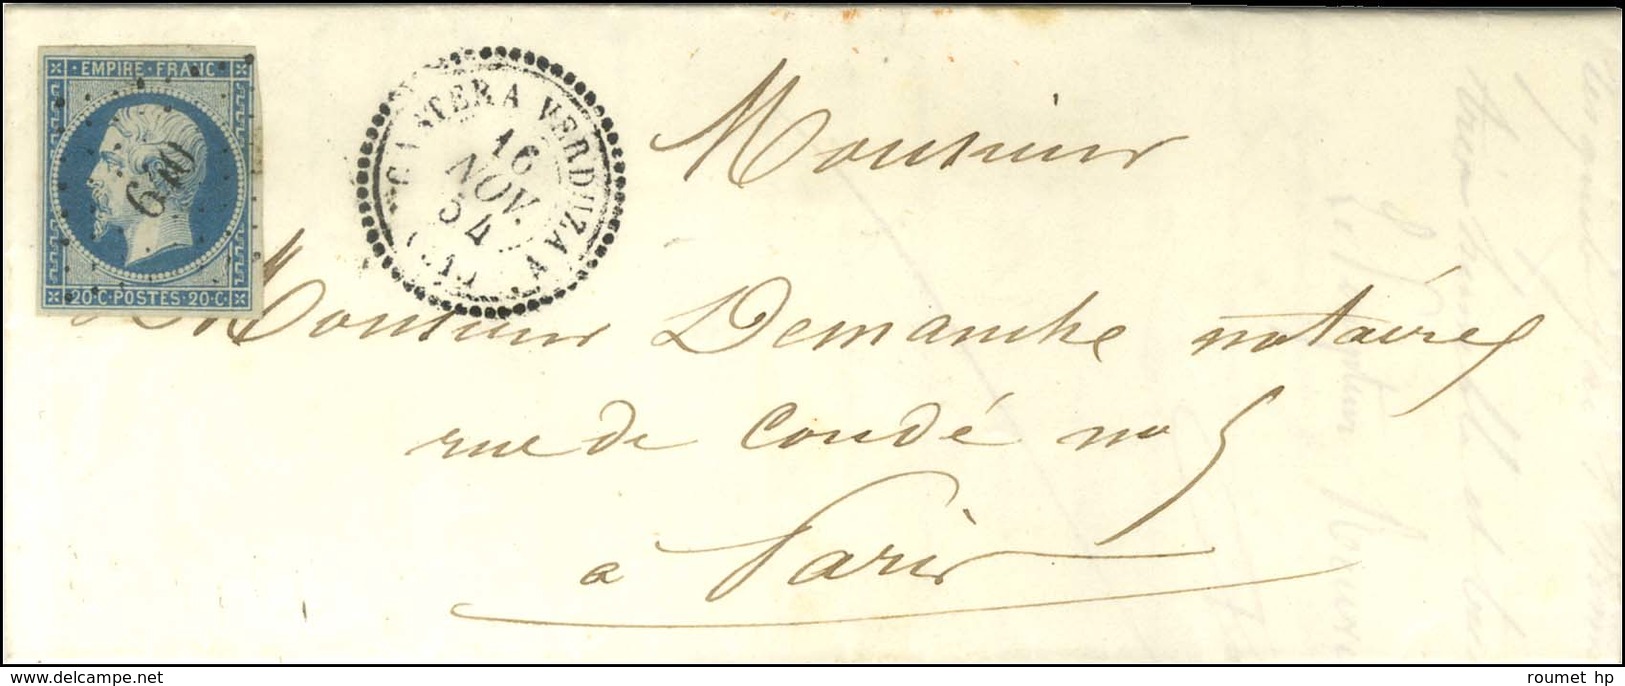 EMPIRE FRANC
670
20·C·POSTES·20·C·
CASTERA VERDUZAN
16
NOV.
54
Monsieur
Monsieur Demanche notaire
rue de Condé no 5
a Paris
delcampe.net
roumet hp